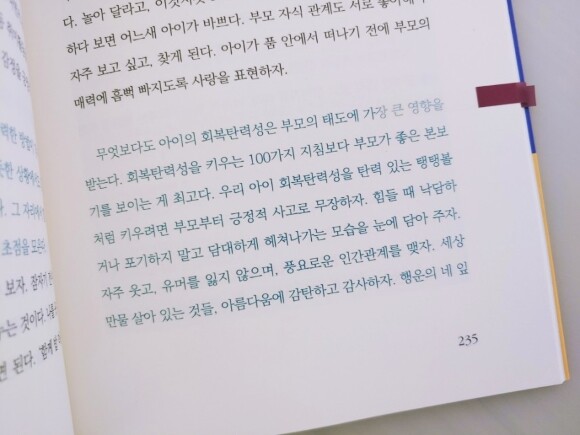 다. 놀아 달라고, 이것저것
하다 보면 어느새 아이가 바쁘다. 부모 자식 관계도 서로 좋아해
자주 보고 싶고, 찾게 된다. 아이가 품 안에서 떠나기 전에 부모의
매력에 흠뻑 빠지도록 사랑을 표현하자.
무엇보다도 아이의 회복탄력성은 부모의 태도에 가장 큰 영향을
받는다. 회복탄력성을 키우는 100가지 지침보다 부모가 좋은 본보
기를 보이는 게 최고다. 우리 아이 회복탄력성을 탄력 있는 탱탱볼
처럼 키우려면 부모부터 긍정적 사고로 무장하자. 힘들 때 낙담하
거나 포기하지 말고 담대하게 헤쳐나가는 모습을 눈에 담아 주자.
자주 웃고, 유머를 잃지 않으며, 풍요로운 인간관계를 맺자. 세상
만물 살아 있는 것들, 아름다움에 감탄하고 감사하자. 행운의 네 잎
235
상황에서
다. 그 자리에서
초점을 모은
보자. 잠자기 전
는 것이다.
면 된다.